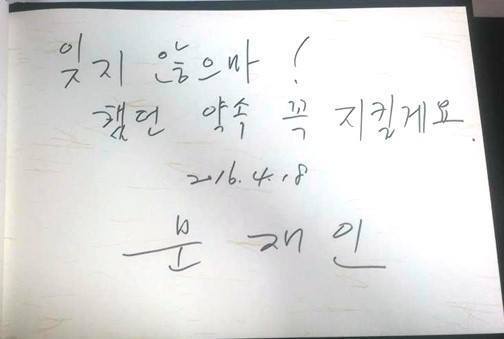 잊지 않으마!
했던 약속 꼭 지킬게요.
2016.4.18
문 재 인